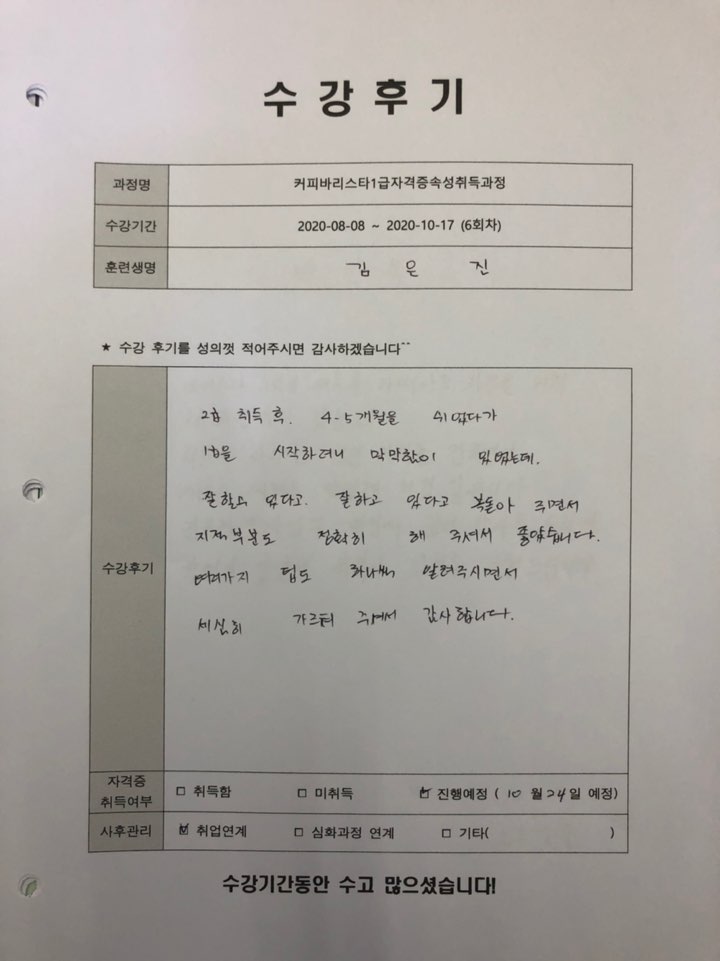 수강후기
과정명 커피바리스타1급자격증속성취득과정
수강기간 2020-08-08 ~ 2020-10-17 (6회차)
훈련생명 김은진
★ 수강 후기를 성의껏 적어주시면 감사하겠습니다^^
수강후기
2급 취득 후. 4-5개월을 쉬었다가
1급을 시작하려니 막막함이 있었는데.
잘하고 있다고. 잘하고 있다고 북돋아 주면서
지적부분도 정확히 해 주셔서 좋았습니다.
여러가지 팁도 하나씩 알려주시면서
세심히 가르쳐 주셔서 감사합니다.
자격증 취득여부 □ 취득함 □ 미취득 ☑ 진행예정 ( 10 월 24일 예정)
사후관리 ☑ 취업연계 □ 심화과정 연계 □ 기타( )
수강기간동안 수고 많으셨습니다!